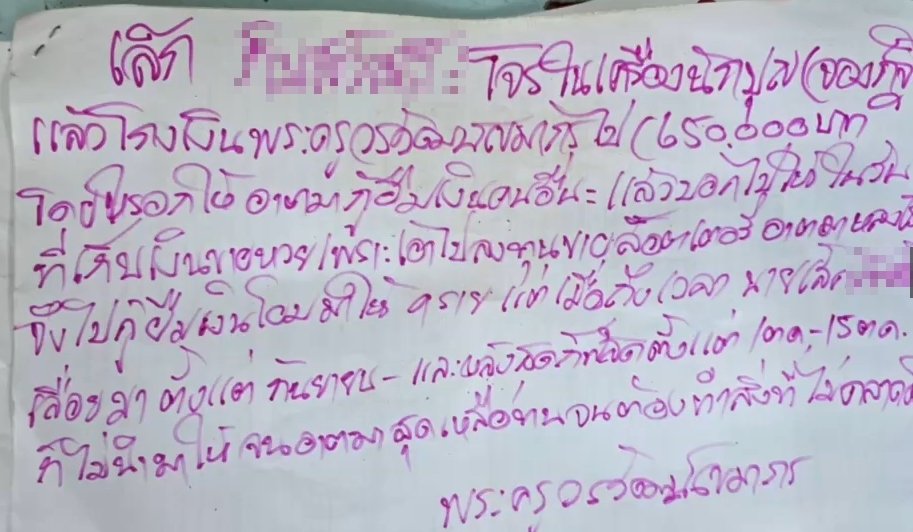 เล็ก โจรในเครื่องนักบุญ (ของภิ
แล้วโกงเงินพระครูวรวัฒน ไป (650,000บาท
โดยหรอกให้ อาตมากู้ยืมเงินคนอื่น แล้วบอกไปให้ ในวัน
ที่เก็บเงินขายหวย เพราะเอาไปลงทุนขายล๊อตเตอรี่ อาตมาหลง
จึงไปกู้ยืมเงินโอนมาให้ หลาย แต่เมื่อถึงเวลา นายเล็ก
เลื่อยมา ตั้งแต่ กันยายน - และหลังสุดก็ ตั้งแต่ 1ตค.-15ตค.
ก็ไม่นำมาให้ จนอาตมาสุดเหลือทน จนต้องทำสิ่งที่ไม่คลาด
พระครูวรวัฒน